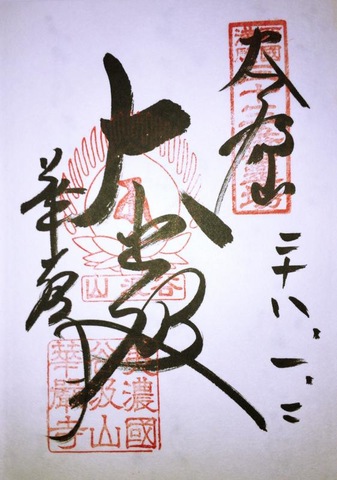 二十八、一、二
大悲殿
山汲谷
華厳寺
美濃國
谷汲山
華嚴寺